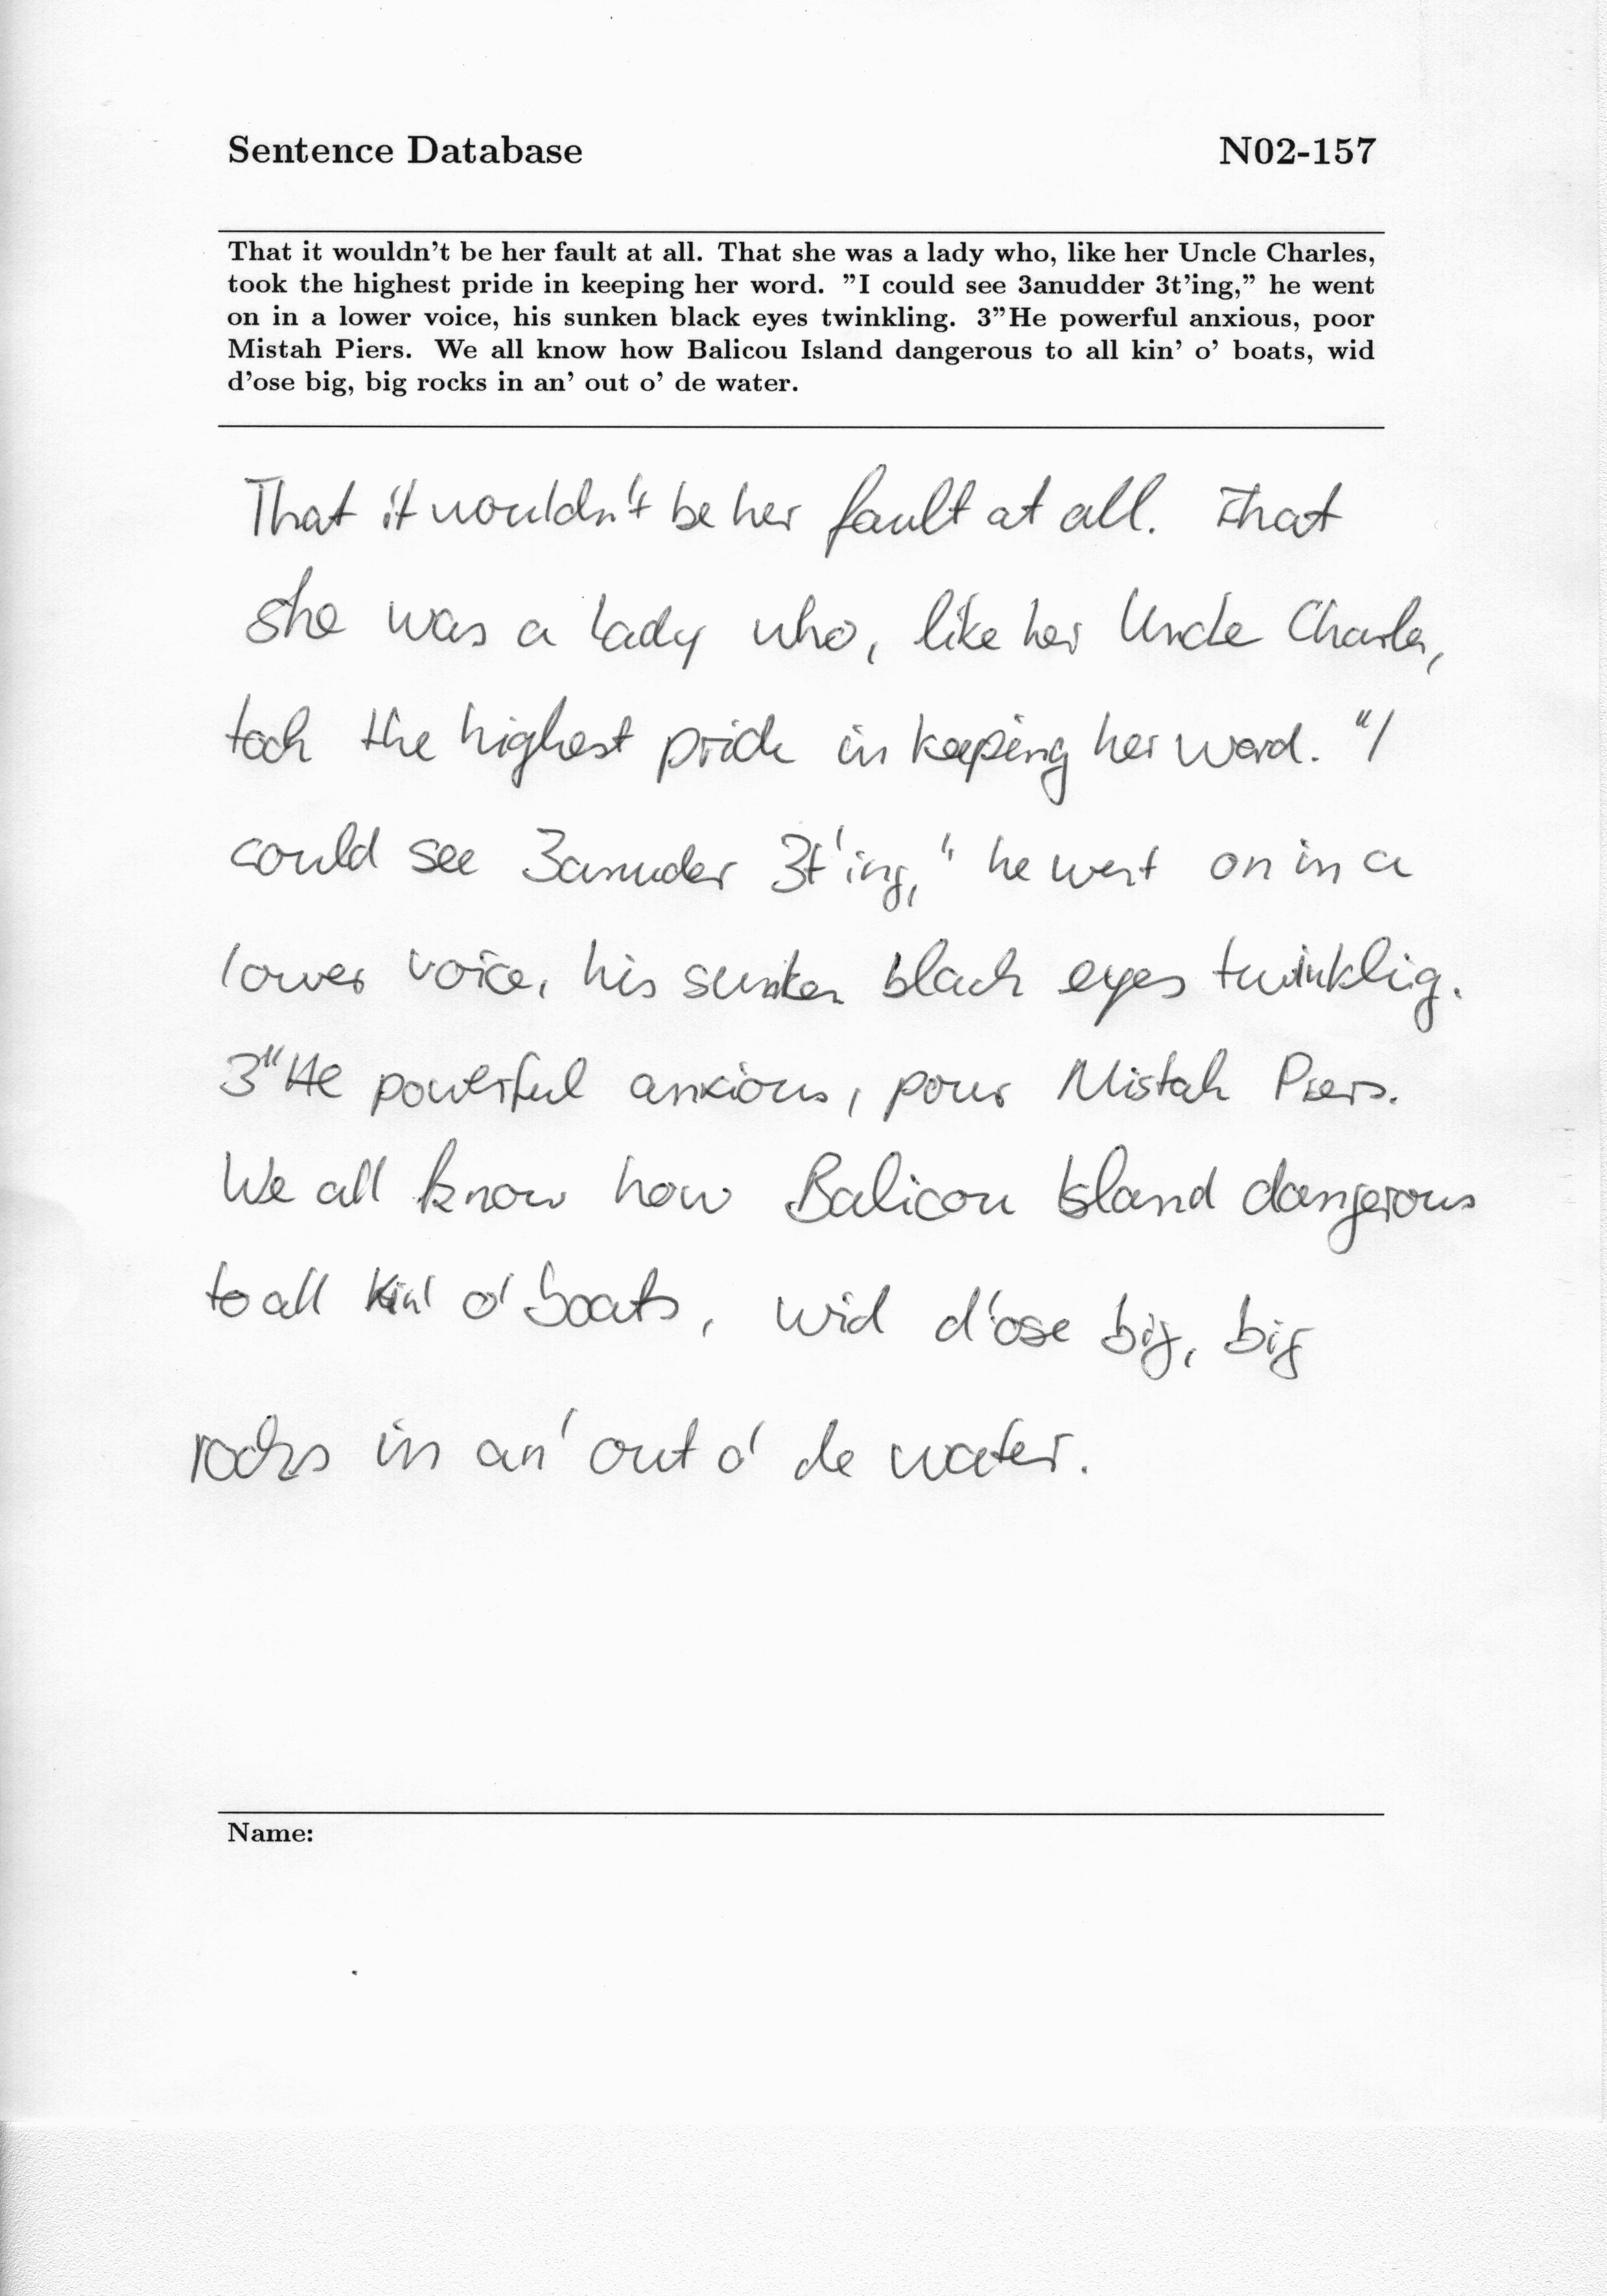 Sentence Database N02-157
That it wouldn't be her fault at all. That she was a lady who, like her Uncle Charles,
took the highest pride in keeping her word. "I could see 3anudder 3t'ing," he went
on in a lower voice, his sunken black eyes twinkling. 3"He powerful anxious, poor
Mistah Piers. We all know how Balicou Island dangerous to all kin' o' boats, wid
d'ose big, big rocks in an' out o' de water.
That it wouldn't be her fault at all. That
she was a lady who, like her Uncle Charles,
took the highest pride in keeping her word. "I
could see 3anuder 3t'ing," he went on in a
lower voice, his sunken black eyes twinklig.
3"He powerful anxious, pour Mistah Piers.
We all know how Balicou Island dangerous
to all kin' o' boats, wid d'ose big, big
rocks in an' out o' de water.
Name: